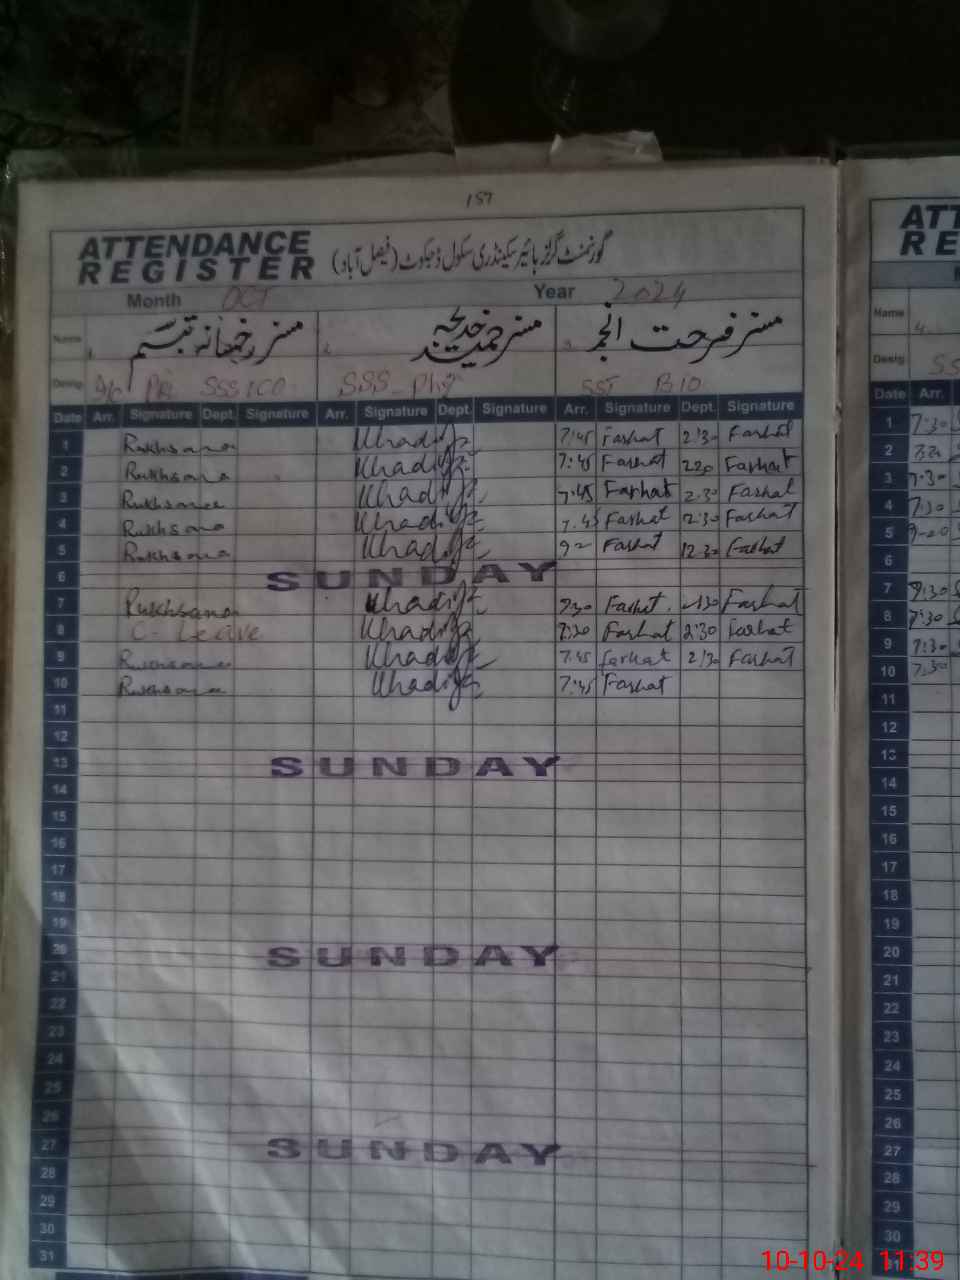 1ST
ATTENDANCE REGISTER گورنمنٹ گرلز ہائیر سیکنڈری سکول ڈجکوٹ (فیصل آباد)
Month OCT Year 2024
Name 1. مسز رخسانہ تبسم 2. مسز حمید خدیجہ 3. مسز فرحت انجم
Desig. SSS ECO SSS - Phy SST BIO
Date Arr. Signature Dept. Signature Arr. Signature Dept. Signature Arr. Signature Dept. Signature
1 Rukhsana Khadija 7:45 Farhat 2:30 Farhat
2 Rukhsana Khadija 7:45 Farhat 220 Farhat
3 Rukhsana Khadija 7.45 Farhat 2.30 Farhat
4 Rukhsana Khadija 7.45 Farhat 2:30 Farhat
5 Rukhsana Khadija Farhat 12.30 Farhat
6 SUNDAY
7 Rukhsana Khadija Farhat Farhat
8 C-Leave Khadija 7:30 Farhat 2:30 Farhat
9 Rukhsana Khadija 7:45 Farhat 2:30 Farhat
10 Rukhsana Khadija 7:45 Farhat
11
12
13 SUNDAY
14
15
16
17
18
19
20 SUNDAY
21
22
23
24
25
26
27 SUNDAY
28
29
30
31
ATT
RE
Name 4.
Desig. SS
Date Arr.
1 7:30
2
3 7.30
4 7:30
5
6
7
8 7:30
9 7:30
10 7:30
11
12
13
14
15
16
17
18
19
20
21
22
23
24
25
26
27
28
29
30
10-10-24 11:39